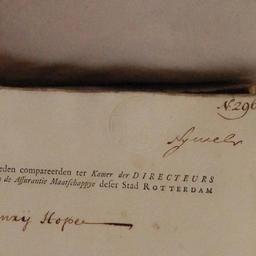 N. 296
eden compareerden ter Kamer der DIRECTEURS
de Assurantie Maatschappye deser Stad ROTTERDAM
nrij Hope